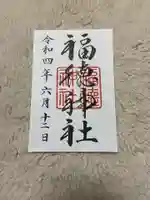 福徳神社
令和四年六月十二日